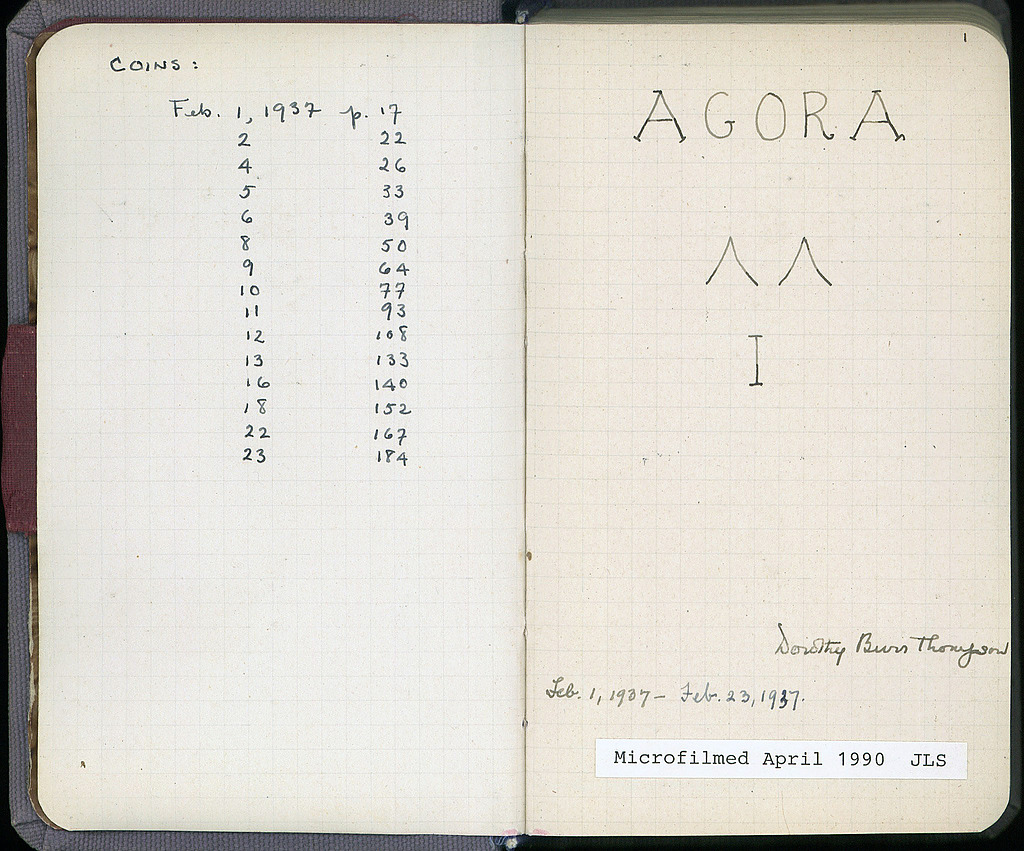 COINS:
Feb. 1, 1937 p. 17
2 22
4 26
5 33
6 39
8 50
9 64
10 77
11 93
12 108
13 133
16 140
18 152
22 167
23 184
1
AGORA
ΛΛ
I
Dorothy Burr Thompson
Feb. 1, 1937 – Feb. 23, 1937.
Microfilmed April 1990 JLS